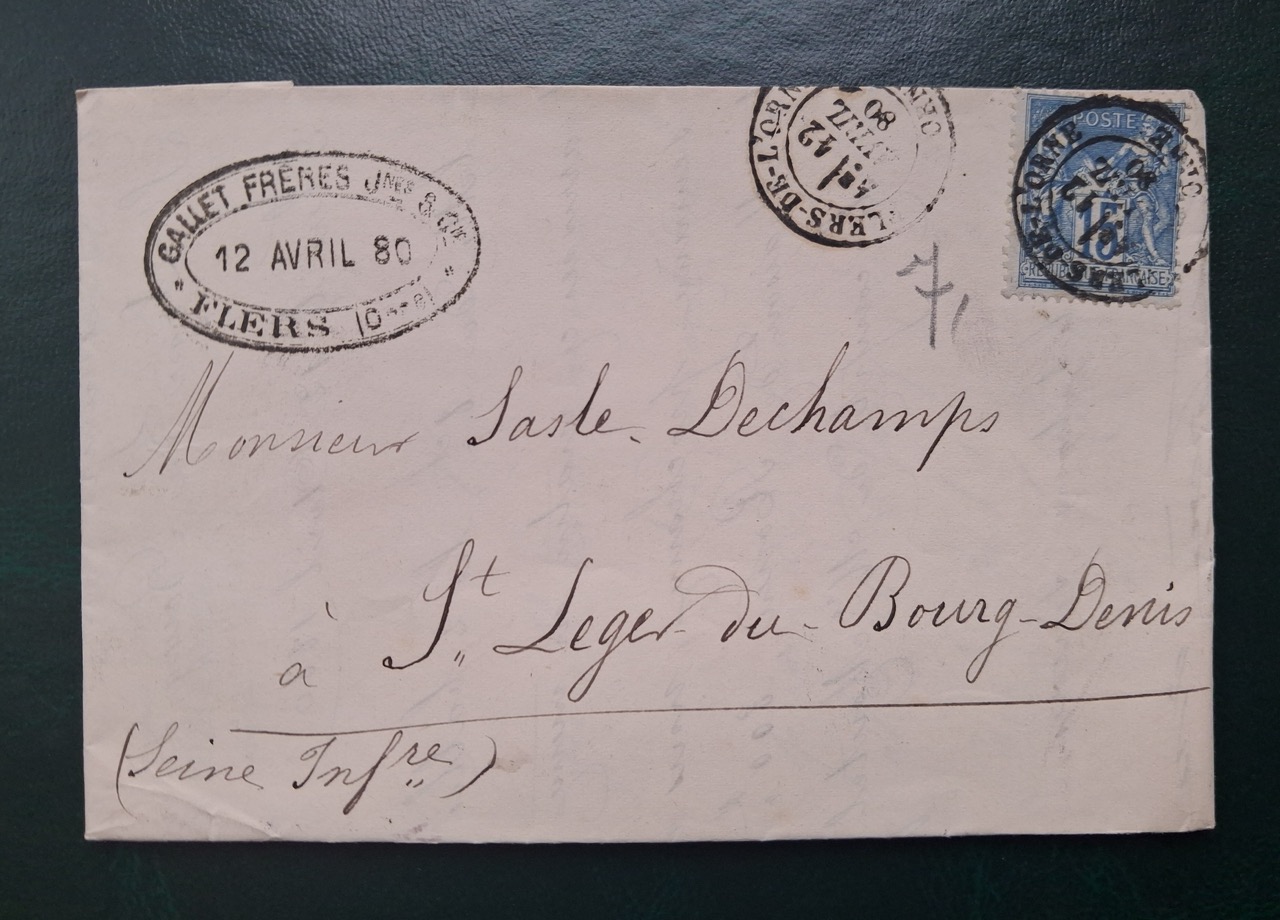 GALLET FRÈRES Jnes & Cie
12 AVRIL 80
" FLERS (Orne) "
FLERS-DE-L'ORNE
12
AVRIL
80
POSTE
15
REPUBLIQUE FRANÇAISE
DE-L'ORNE
12
80
7,
Monsieur Dechamps
à St Leger-du-Bourg-Denis
(Seine Infre)